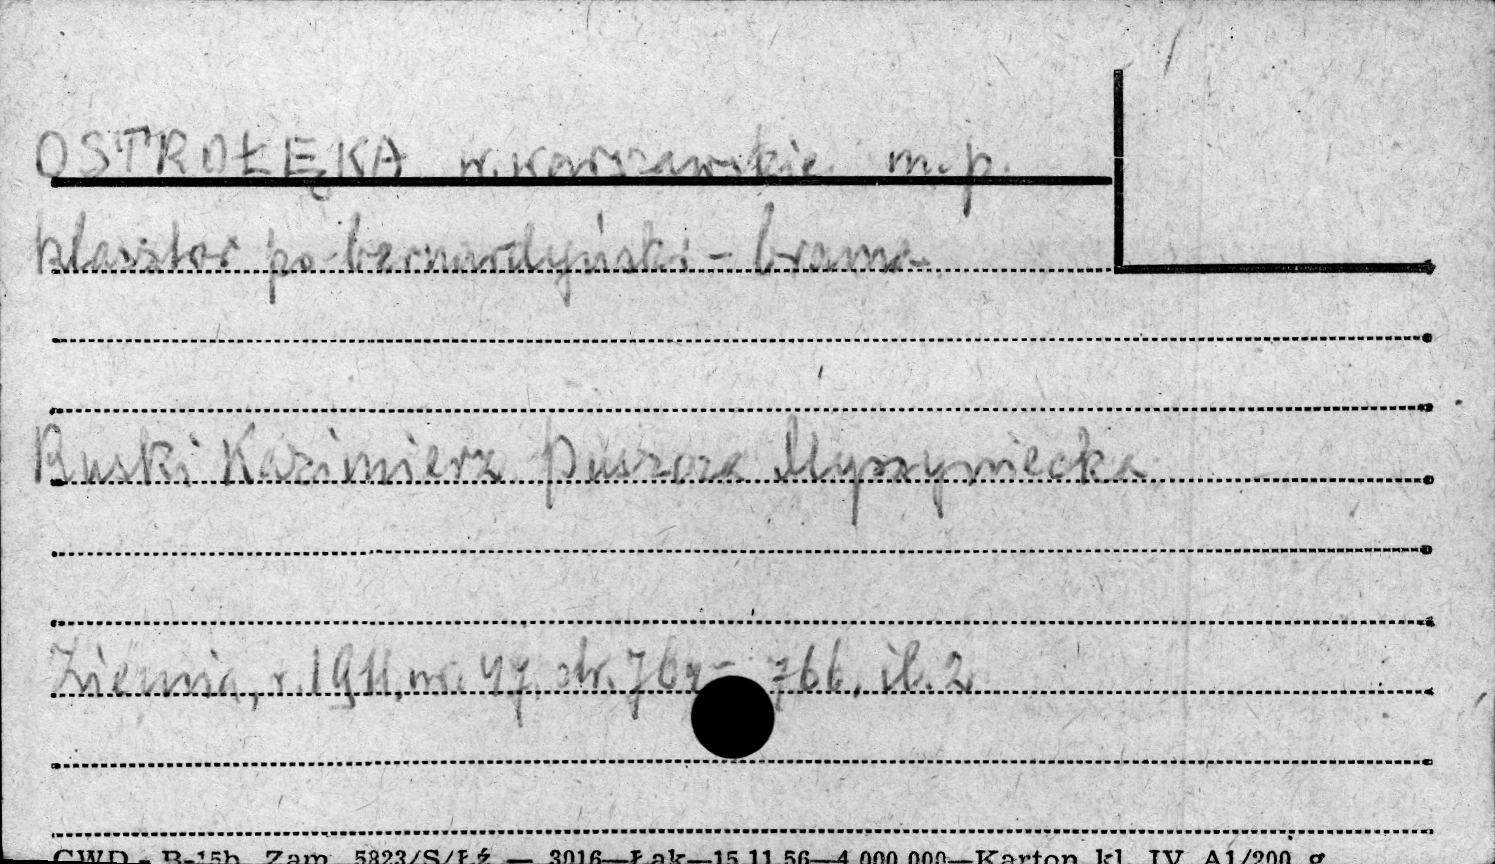 OSTROŁĘKA w. warszawskie m. p.
klasztor po-bernardyński - brama
Ruski Kazimierz Puszcza Myszyniecka
Ziemia, r. 1911, nr. 47, str. 764- 766, il. 2
CWD - B-15b Zam. 5823/S/Łź — 3016—Łąk—15.11.56—4.000.000—Karton kl. IV A1/200 g